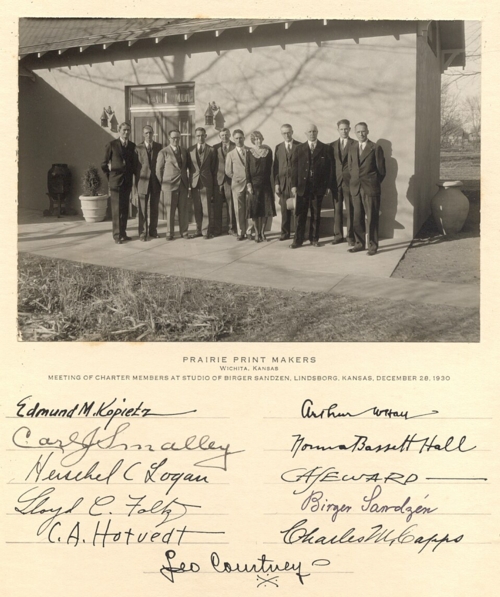 PRAIRIE PRINT MAKERS
WICHITA, KANSAS
MEETING OF CHARTER MEMBERS AT STUDIO OF BIRGER SANDZEN, LINDSBORG, KANSAS, DECEMBER 28, 1930
Edmund M. Kopietz
Arthur W Hall
Carl J Smalley
Norma Bassett Hall
Herschel C Logan
CA SEWARD
Lloyd C. Foltz
Birger Sandzén
C. A. Hotvedt
Charles M. Capps
Leo Courtney